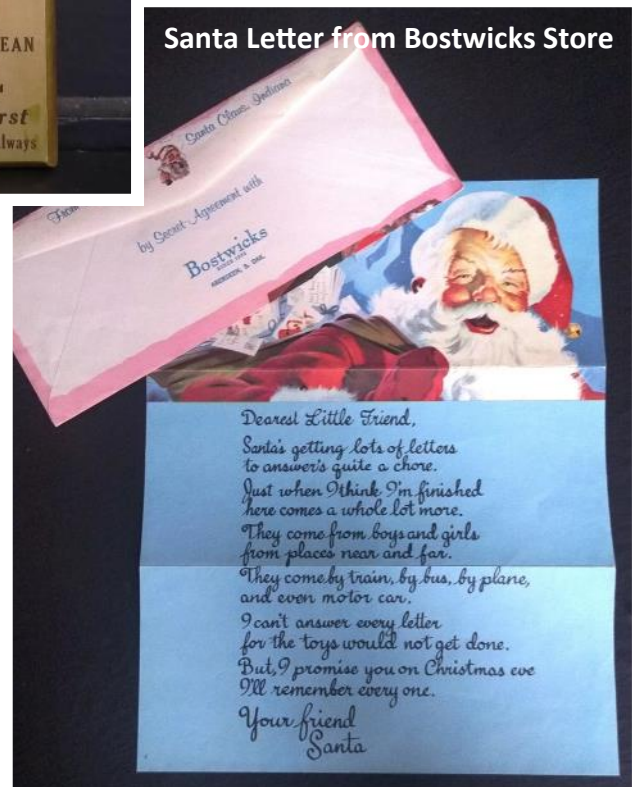 EAN
rst
lways
Santa Letter from Bostwicks Store
From
Santa Claus, Indiana
by Secret Agreement with
Bostwicks
ABERDEEN, S. DAK.
Dearest Little Friend,
Santa's getting lots of letters
to answer's quite a chore.
Just when I think I'm finished
here comes a whole lot more.
They come from boys and girls
from places near and far.
They come by train, by bus, by plane,
and even motor car.
I can't answer every letter
for the toys would not get done.
But, I promise you on Christmas eve
I'll remember every one.
Your friend
Santa